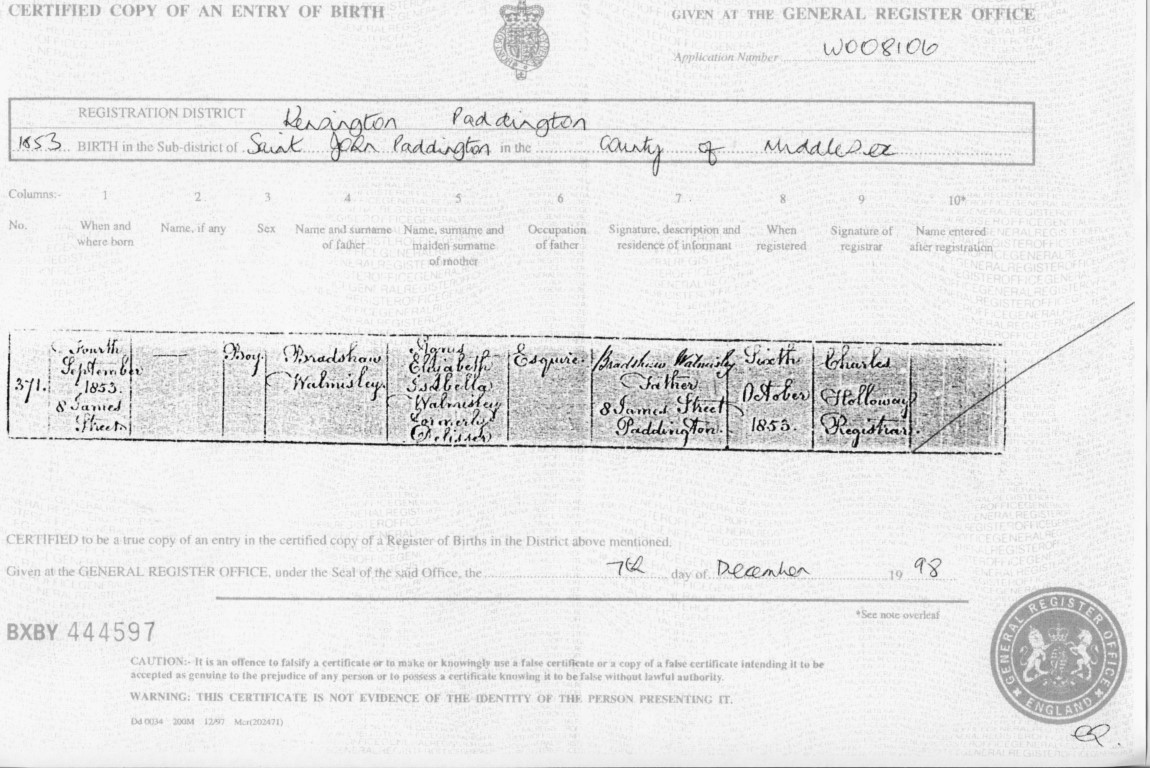 CERTIFIED COPY OF AN ENTRY OF BIRTH
GIVEN AT THE GENERAL REGISTER OFFICE
Application Number W008106
REGISTRATION DISTRICT Kensington Paddington
1853 BIRTH in the Sub-district of Saint John Paddington in the County of Middlesex
Columns:- 1 2 3 4 5 6 7 8 9 10*
No. When and where born Name, if any Sex Name and surname of father Name, surname and maiden surname of mother Occupation of father Signature, description and residence of informant When registered Signature of registrar Name entered after registration
371. Fourth September 1853 8 James Street — Boy Bradshaw Walmisley Elizabeth Isabella Walmisley formerly Esquire. Bradshaw Walmisley Father 8 James Street Paddington. Sixth October 1853. Charles Holloway Registrar.
CERTIFIED to be a true copy of an entry in the certified copy of a Register of Births in the District above mentioned.
Given at the GENERAL REGISTER OFFICE, under the Seal of the said Office, the 7th day of December 19 98
*See note overleaf
BXBY 444597
CAUTION:- It is an offence to falsify a certificate or to make or knowingly use a false certificate or a copy of a false certificate intending it to be
accepted as genuine to the prejudice of any person or to possess a certificate knowing it to be false without lawful authority.
WARNING: THIS CERTIFICATE IS NOT EVIDENCE OF THE IDENTITY OF THE PERSON PRESENTING IT.
Dd 0034 200M 12/97 Mcr(202471)
GENERAL REGISTER OFFICE
ENGLAND